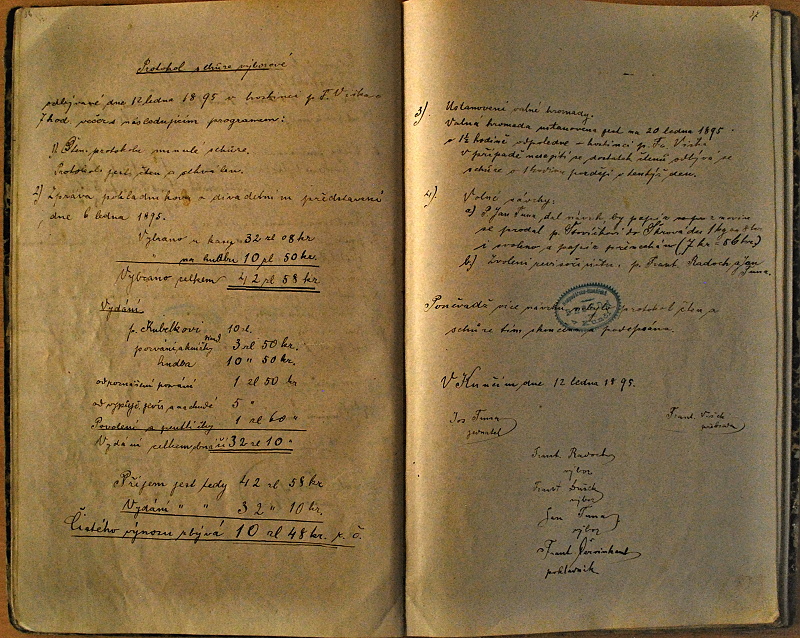 Protokol schůze výborové
odbývané dne 12 ledna 1895 v hostinci p. F.
7 hod. večer s následujícím programem:
1) Čtení protokolu minulé schůze.
Protokol jest čten a schválen.
2) Zpráva pokladníkova o divadelním představení
dne 6 ledna 1895.
Vybráno u kasy 32 zl 08 kr
" na hudbu 10 zl 50 kr.
Vybráno celkem 42 zl 58 kr
Vydání
p. Kubelkovi 10 zl.
3 zl 50 kr.
hudba 10 " 50 kr.
1 zl 50 kr
5 "
Povolení 1 zl 60 "
Vydání celkem 32 zl 10 "
Příjem jest tedy 42 zl 58 kr
Vydání " " 32 " 10 kr.
Čistého výnosu zbývá 10 zl 48 kr. r. č.
3). Ustanovení valné hromady.
Valná hromada ustanovena jest na 20 ledna 1895.
o 1½ hodině odpoledne v hostinci p. Fr.
v případě nesejití se dostatek členů odbývá se
schůze o 1 hodinu později v tentýž den.
4). Volné návrhy:
a) P. Jan Tuma dal návrh, by papír z novin
se prodal p.
i svoleno (7 kr = 56 kr)
b) Zvolení revisoři účtu. p. Frant. Radoch a Jan
Tuma.
Poněvadž více návrhů nebylo protokol čten a
schůze tím skončena a podepsána.
V dne 12 ledna 1895.
Jos Tuma
jednatel
Frant.
předseda
Frant. Radoch
výbor
Frant
výbor
Jan Tuma
výbor
Frant
pokladník